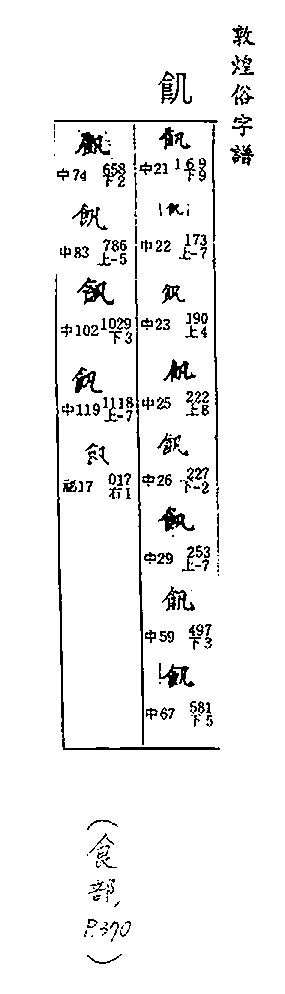 敦煌俗字譜
飢
中21 169下9
中22 173上-7
中23 190上4
中25 222上8
中26 227下-2
中29 253上-7
中59 497下3
中67 581下5
中74 658下2
中83 786上-5
中102 1029下3
中119 1118上-7
祕17 017右1
(食部, P.370)